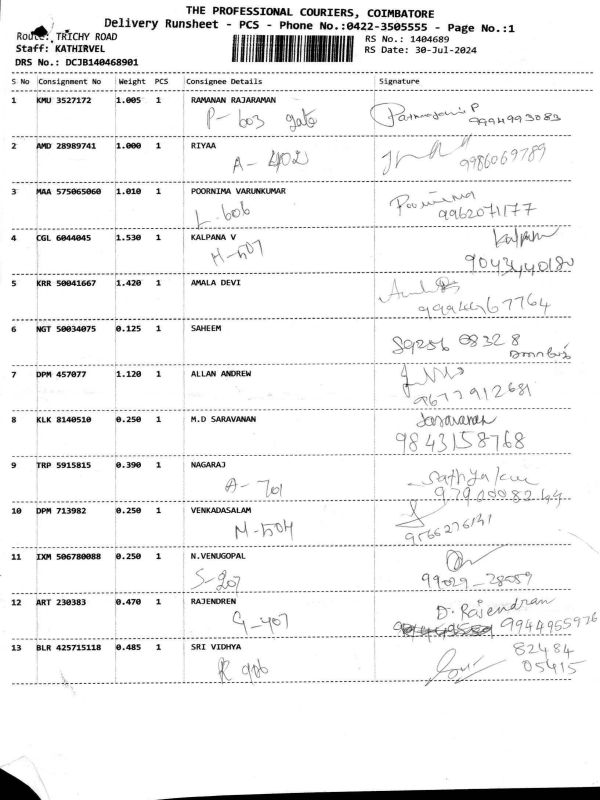 THE PROFESSIONAL COURIERS, COIMBATORE
Delivery Runsheet - PCS - Phone No.:0422-3505555 - Page No.:1
Route: TRICHY ROAD
RS No.: 1404689
Staff: KATHIRVEL
RS Date: 30-Jul-2024
DRS No.: DCJB140468901
S No Consignment No Weight PCS Consignee Details Signature
1 KMU 3527172 1.005 1 RAMANAN RAJARAMAN
P- 603 gate 9994993083
2 AMD 28989741 1.000 1 RIYAA
A - 402 9986069789
3 MAA 575065060 1.010 1 POORNIMA VARUNKUMAR Poornima
L-606 9962071177
4 CGL 6044045 1.530 1 KALPANA V Kalpana
M-507
5 KRR 50041667 1.420 1 AMALA DEVI
6 NGT 50034075 0.125 1 SAHEEM
7 DPM 457077 1.120 1 ALLAN ANDREW
9677912681
8 KLK 8140510 0.250 1 M.D SARAVANAN Saravanan
9843158768
9 TRP 5915815 0.390 1 NAGARAJ
A- 701
10 DPM 713982 0.250 1 VENKADASALAM
M-504 9566276141
11 IXM 506780088 0.250 1 N.VENUGOPAL
S-207 99029-28089
12 ART 230383 0.470 1 RAJENDREN D. Rajendran
G-407 9944955976
13 BLR 425715118 0.485 1 SRI VIDHYA 82484
R 906 05415